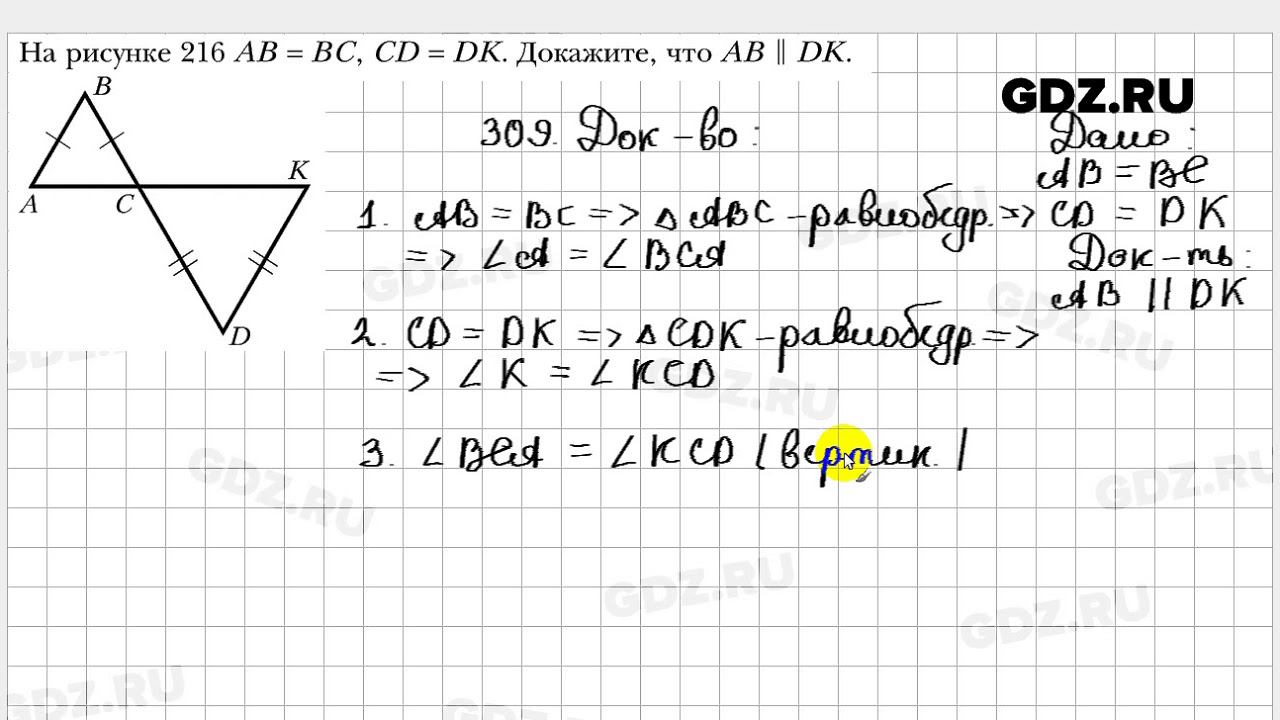 На рисунке 216 AB = BC, CD = DK. Докажите, что AB ∥ DK.
GDZ.RU
B
K
A
C
D
309. Док-во:
Дано:
AB = BC
1. AB = BC => △ABC - равнобедр. =>
CD = DK
=> ∠A = ∠BCA
Док-ть:
AB || DK
2. CD = DK => △CDK - равнобедр. =>
=> ∠K = ∠KCD
3. ∠BCA = ∠KCD (вертик.)
GDZ.RU
GDZ.RU
GDZ.RU
GDZ.RU
GDZ.RU
GDZ.RU
GDZ.RU
GDZ.RU